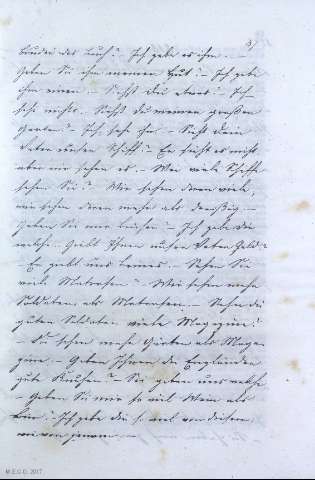 37
Bruder das Buch? Ich gebe es ihm. —
Geben Sie ihm meinen Hut? — Ich gebe
ihm einen. — Siehst du etwas? — Ich
sehe nichts. — Siehst du meinen großen
Garten? — Ich sehe ihn. — Sieht dein
Vater unser Schiff? — Er sieht es nicht
aber wir sehen es. — Wie viele Schiffe
sehen Sie? — Wir sehen deren viele,
wir sehen deren mehr als dreißig. —
Geben Sie mir Bücher? — Ich gebe dir
welche. — Giebt Ihnen unser Vater Geld?
— Er giebt uns keines. — Sehen Sie
viele Matrosen? — Wir sehen mehr
Soldaten als Matrosen. — Sehen die
guten Soldaten viele Magazine?
— Sie sehen mehr Gärten als Maga-
zine. — Geben Ihnen die Engländer
gute Kuchen? — Sie geben uns welche
— Geben Sie mir so viel Wein als
Bier. — Ich gebe dir so viel von diesem,
wie von jenem. —
M.E.C.D. 2017